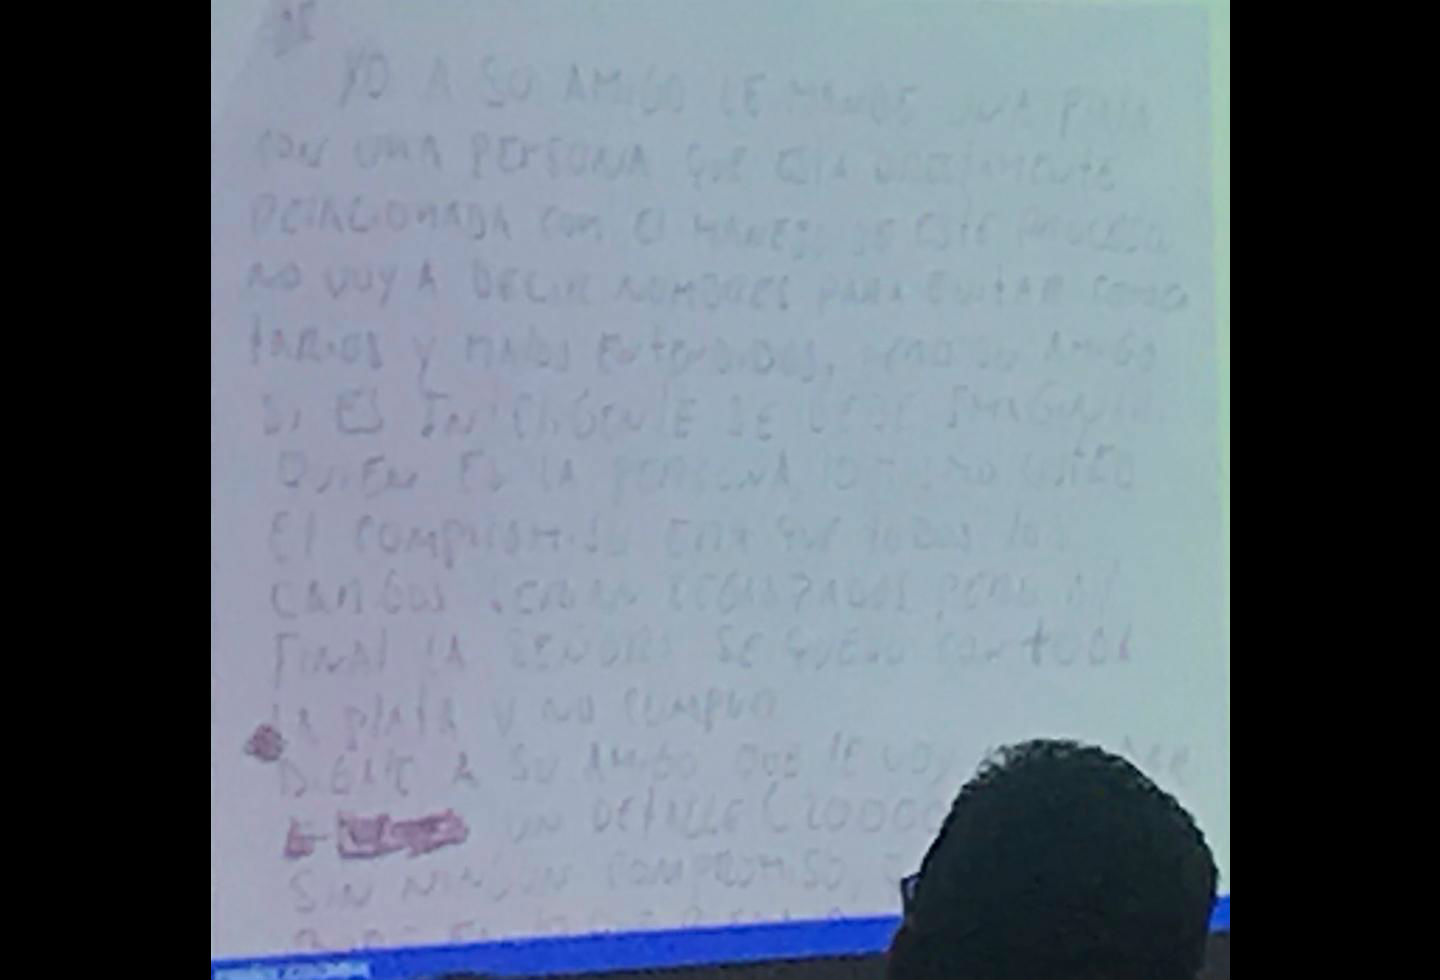 YO A SU AMIGO LE MANDE UNA PLATA
CON UNA PERSONA QUE ESTA DIRECTAMENTE
RELACIONADA CON El MANEJO DE ESTE PROCESO
NO VOY A DECIR NOMBRES PARA EVITAR
tARIOS Y MALOS ENtENDIDOS, PERO SU AMIGO
SI ES INTELIGENTE SE DEBE IMAGINAR
QUIEN ES LA PERSONA
El COMPROMISO ERA QUE tODOS lOS
CARGOS SERIAN PERO Al
FINAl LA SEÑORA SE QUEDO CON tODA
lA PlAtA Y NO CUMPLIO
DIGALE A SU AMIGO QUE lE VOY A
UN DETALLE (20000
SIN NINGUN COMPROMISO,